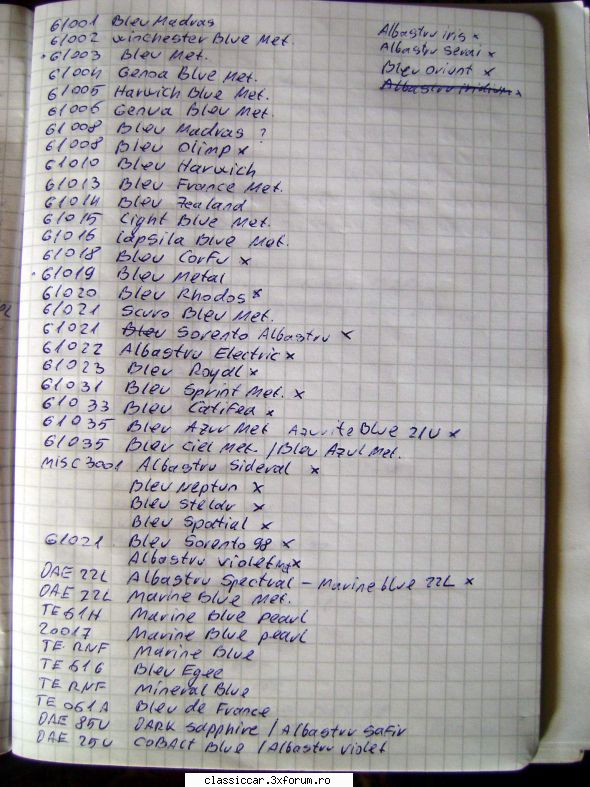 61001 Bleu Madras
61002 Winchester Blue Met.
61003 Bleu Met.
61004 Genoa Blue Met.
61005 Harwich Blue Met.
61006 Genua Bleu Met.
61008 Bleu Madras ?
61008 Bleu Olimp x
61010 Bleu Harwich
61013 Bleu France Met.
61014 Bleu Zealand
61015 Light Blue Met.
61016 Lapsila Blue Met.
61018 Bleu Corfu x
61019 Bleu Metal
61020 Bleu Rhodos x
61021 Scuro Bleu Met.
61021 Bleu Sorento Albastru x
61022 Albastru Electric x
61023 Bleu Royal x
61031 Bleu Sprint Met. x
61033 Bleu Catifea x
61035 Bleu Azur Met Azurite Blue 21U x
61035 Bleu Ciel Met. / Bleu Azul Met.
MISC 3001 Albastru Sideral x
Bleu Neptun x
Bleu Stelar x
Bleu Spatial x
61021 Bleu Sorento 98 x
Albastru violet x
DAE 22L Albastru Spectral - Marine blue 22L x
DAE 22L Marine Blue Met.
TE 61H Marine Blue pearl
20017 Marine Blue pearl
TE RNF Marine Blue
TE 616 Bleu Egee
TE RNF Mineral Blue
TE 061A Bleu de France
DAE 85U DARK sapphire / Albastru Safir
DAE 25U COBALT Blue / Albastru violet
Albastru iris x
Albastru Serai x
Bleu Oriunt x
Albastru Iridium x
classiccar.3xforum.ro